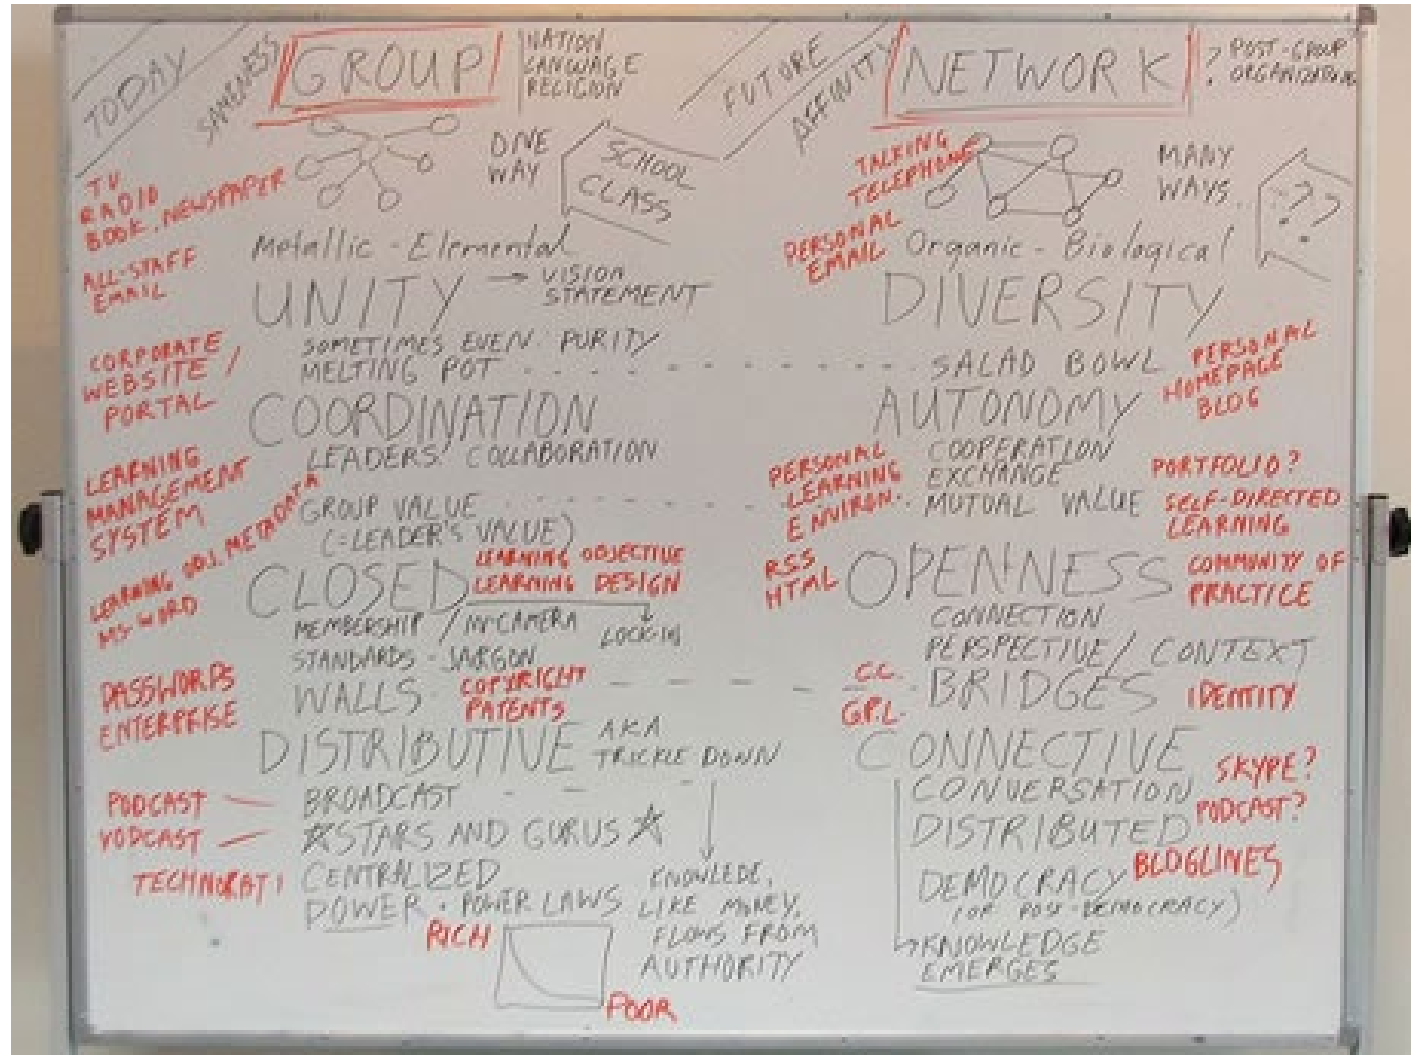 TODAY
SAMENESS
GROUP
NATION
LANGUAGE
RELIGION
ONE
WAY
SCHOOL
CLASS
TV
RADIO
BOOK, NEWSPAPER
Metallic - Elemental
ALL-STAFF
EMAIL
UNITY → VISION
STATEMENT
SOMETIMES EVEN: PURITY
MELTING POT
CORPORATE
WEBSITE /
PORTAL
COORDINATION
LEADERS: COLLABORATION
LEARNING
MANAGEMENT
SYSTEM
GROUP VALUE
(=LEADER'S VALUE)
LEARNING OBJ. METADATA
MS WORD
CLOSED
LEARNING OBJECTIVE
LEARNING DESIGN
LOCK-IN
MEMBERSHIP / IN-CAMERA
STANDARDS - JARGON
WALLS
COPYRIGHT
PATENTS
PASSWORDS
ENTERPRISE
DISTRIBUTIVE AKA
TRICKLE DOWN
PODCAST
VODCAST
BROADCAST
STARS AND GURUS
TECHNORATI
CENTRALIZED
POWER · POWER LAWS
RICH
POOR
KNOWLEDE,
LIKE MONEY,
FLOWS FROM
AUTHORITY
FUTURE
AFFINITY
NETWORK
? POST-GROUP
ORGANIZATION
TALKING
TELEPHONE
MANY
WAYS...
???
PERSONAL
EMAIL
Organic - Biological
DIVERSITY
SALAD BOWL
PERSONAL
HOMEPAGE
BLOG
AUTONOMY
COOPERATION
EXCHANGE
MUTUAL VALUE
PERSONAL
LEARNING
ENVIRON.
PORTFOLIO?
SELF-DIRECTED
LEARNING
RSS
HTML
OPENNESS
COMMUNITY OF
PRACTICE
CONNECTION
PERSPECTIVE / CONTEXT
C.C.
G.P.L.
BRIDGES
IDENTITY
CONNECTIVE
SKYPE?
PODCAST?
CONVERSATION
DISTRIBUTED
BLOGLINES
DEMOCRACY
(OR POST-DEMOCRACY)
KNOWLEDGE
EMERGES